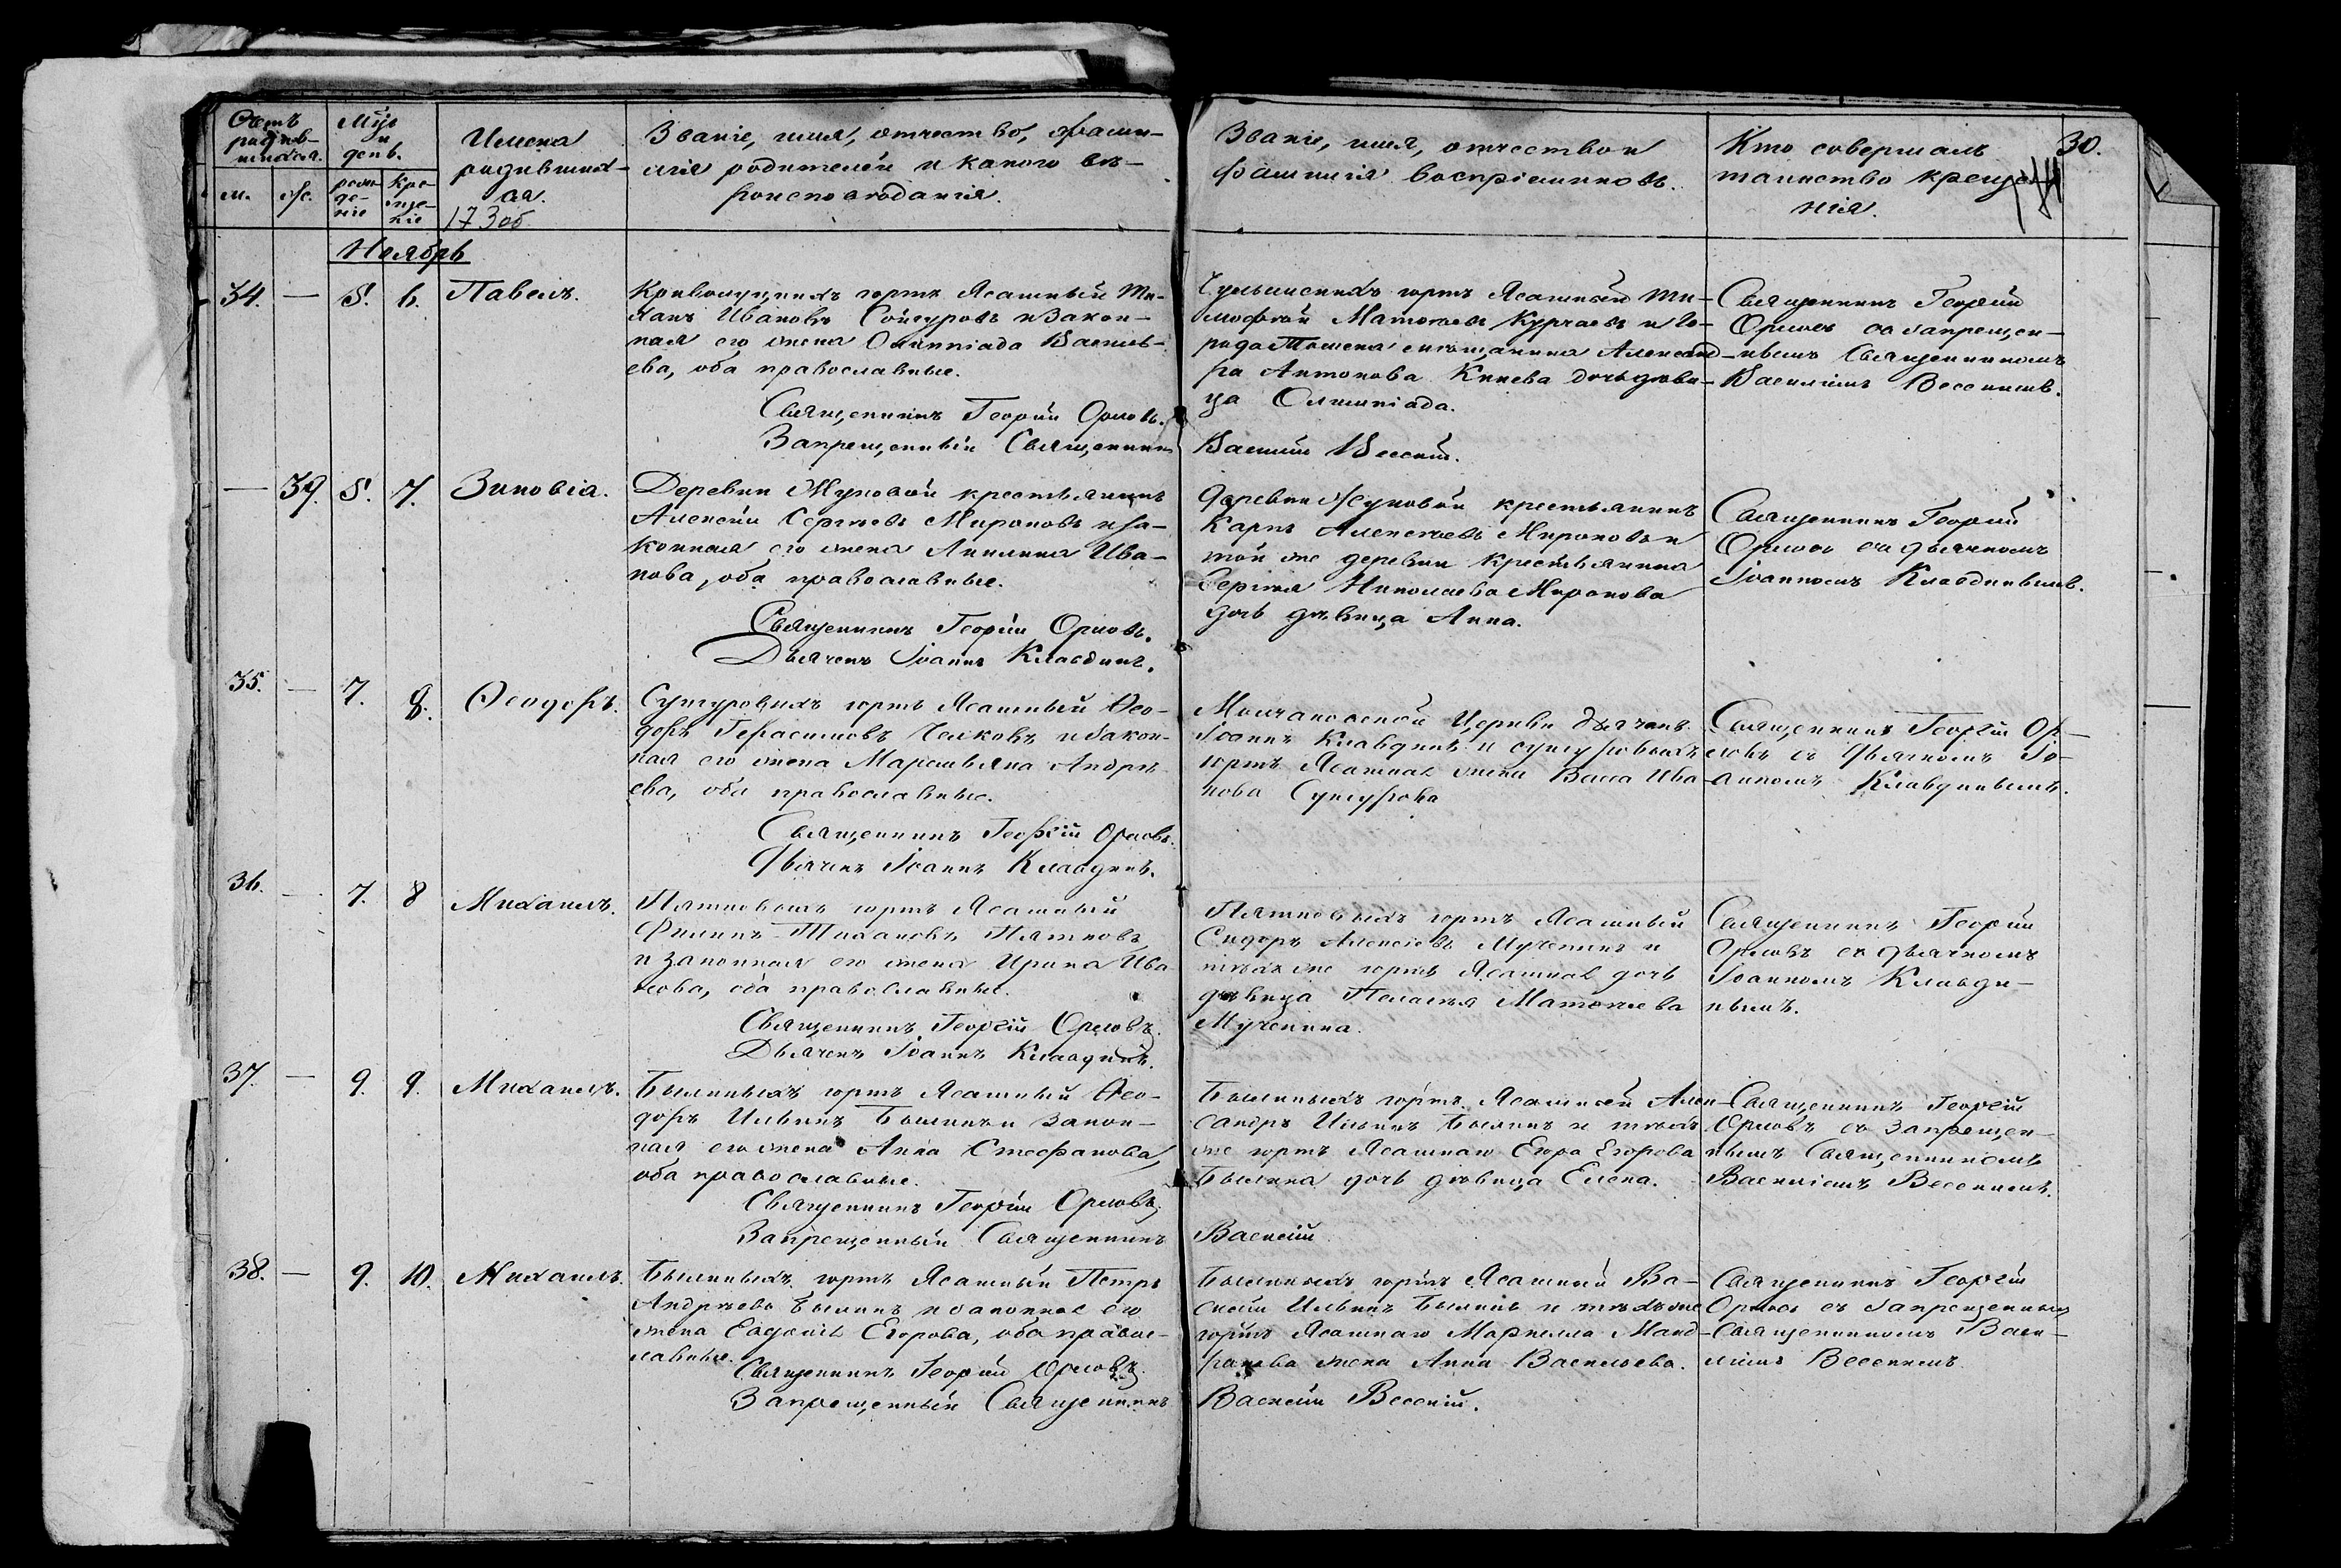 Счетъ родив-шихся.
м.
ж.
Мѣс. и день.
рожденіе
крещеніе
Имена родившихся.
173об
Званіе, имя, отчество, фами-
лія родителей и какого вѣ-
роисповѣданія.
Званіе, имя, отчество и
фамилія воспріемниковъ.
Кто совершалъ
таинство креще-
нія.
30.
Ноябрь
34. — 5. 6. Павелъ.
юртъ Ясашный Ти-
Ивановъ и закон-
ная его жена Олимпіада Василь-
ева, оба православные.
Священникъ Георгій Орловъ.
Запрещенный Священникъ
юртъ Ясашный Ти-
мофей Матвѣевъ и го-
рода Томска мѣщанина Александ-
ра Антонова дочь дѣви-
ца Олимпіада.
Василій Весскій.
Священникъ Георгій
Орловъ съ запрещен-
нымъ Священникомъ
Василіемъ
— 39. 5. 7. Зиновія.
Деревни Жуковой крестьянинъ
Алексѣй Сергѣевъ Мироновъ и за-
конная его жена Акилина Ива-
нова, оба православные.
Священникъ Георгій Орловъ.
Дьячекъ Іоаннъ Клавдинъ.
Деревни Жуковой крестьянинъ
Карпъ Алексѣевъ Мироновъ и
той же деревни крестьянина
Сергія Николаева Миронова
дочь дѣвица Анна.
Священникъ Георгій
Орловъ съ дьячкомъ
Іоанномъ Клавдинымъ.
35. — 7. 8. Ѳеодоръ.
Сунгуровыхъ юртъ Ясашный Ѳео-
доръ Герасимовъ и закон-
ная его жена Маремьяна Андрѣ-
ева, оба православные.
Священникъ Георгій Орловъ.
Дьячекъ Іоаннъ Клавдинъ.
Молчановской Церкви дьячекъ
Іоаннъ Клавдинъ и Сунгуровыхъ
юртъ Ясашная жена Васса Ива-
нова Сунгурова
Священникъ Георгій Ор-
ловъ съ Дьячкомъ Іо-
анномъ Клавдинымъ.
36. — 7. 8 Михаилъ.
Пятковыхъ юртъ Ясашный
Филипъ Тихановъ Пятковъ
и законная его жена Ирина Ива
нова, оба православные.
Священникъ Георгій Орловъ.
Дьячекъ Іоаннъ Клавдинъ.
Пятковыхъ юртъ Ясашный
Сидоръ Алексѣевъ Мученинъ и
тѣхъ же юртъ Ясашная дочь
дѣвица Пелагѣя Матвѣева
Мученина.
Священникъ Георгій
Орловъ съ дьячкомъ
Іоанномъ Клавди-
нымъ.
37. — 9. 9. Михаилъ.
Былиныхъ юртъ Ясашный Ѳео-
доръ Ильинъ Былинъ и закон-
ная его жена Анна Стефанова,
оба православные.
Священникъ Георгій Орловъ,
Запрещенный Священникъ
Былиныхъ юртъ Ясашный Алек-
сандръ Ильинъ Былинъ и тѣхъ
же юртъ Ясашнаго Егора Егорова
Былина дочь дѣвица Елена.
Василій
Священникъ Георгій
Орловъ съ Запрещен-
нымъ Священникомъ
Василіемъ
38. — 9. 10. Михаилъ.
Былиныхъ юртъ Ясашный Петръ
Андрѣевъ Былинъ и законная его
жена Евдокія Егорова, оба правос-
лавные.
Священникъ Георгій Орловъ.
Запрещенный Священникъ
Былиныхъ юртъ Ясашный Ва-
силій Ильинъ Былинъ и тѣхъ же
юртъ Ясашнаго
жена Анна Васильева.
Василій Весскій.
Священникъ Георгій
Орловъ съ Запрещеннымъ
Священникомъ Васи-
ліемъ